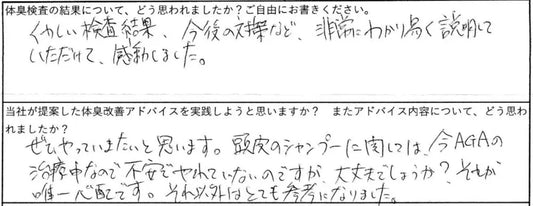 体臭検査の結果について、どう思われましたか？ご自由にお書きください。
くわしい検査結果、今後の対策など、非常にわかり易く説明して
いただけて、感動しました。
当社が提案した体臭改善アドバイスを実践しようと思いますか？　またアドバイス内容について、どう思わ
れましたか？
ぜひやっていきたいと思います。頭皮のシャンプーに関しては、今AGAの
治療中なので不安でやれていないのですが、大丈夫でしょうか？それが
唯一心配です。それ以外はとても参考になりました。